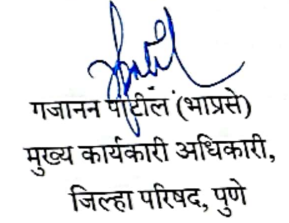 गजानन पाटील (भाप्रसे)
मुख्य कार्यकारी अधिकारी,
जिल्हा परिषद, पुणे